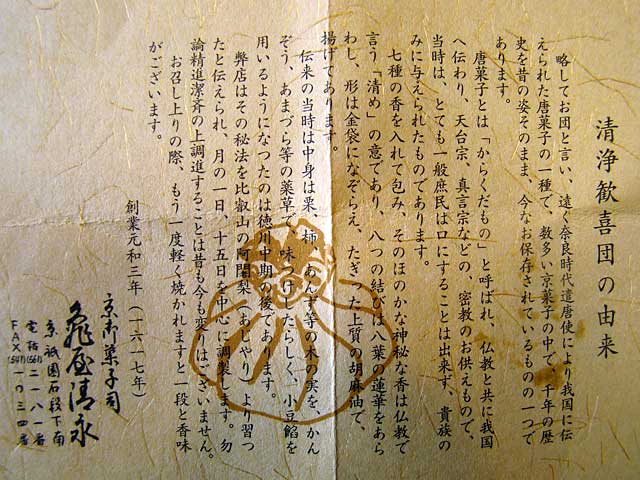 清浄歓喜団の由来
略してお団と言い、遠く奈良時代遣唐使により我国に伝
えられた唐菓子の一種で、数多い京菓子の中で、千年の歴
史を昔の姿そのまま、今なお保存されているものの一つで
あります。
唐菓子とは「からくだもの」と呼ばれ、仏教と共に我国
へ伝わり、天台宗、真言宗などの、密教のお供えもので、
当時は、とても一般庶民は口にすることは出来ず、貴族の
みに与えられたものであります。
七種の香を入れて包み、そのほのかな神秘な香は仏教で
言う「清め」の意であり、八つの結びは八葉の蓮華をあら
わし、形は金袋になぞらえ、たぎった上質の胡麻油で、
揚げてあります。
伝来の当時は中身は栗、柿、あんず等の木の実を、かん
ぞう、あまづら等の薬草で、味つけしたらしく、小豆餡を
用いるようになつたのは徳川中期の後であります。
弊店はその秘法を比叡山の阿闍梨（あじやり）より習つ
たと伝えられ、月の一日、十五日を中心に調製します。勿
論精進潔斉の上調進することは昔も今も変りはございません。
お召し上りの際、もう一度軽く焼かれますと一段と香味
がございます。
創業元和三年（一六一七年）
京御菓子司
亀屋清永
京祇園石段下南
電話(561)二一八一番
FAX(541)一〇三四番